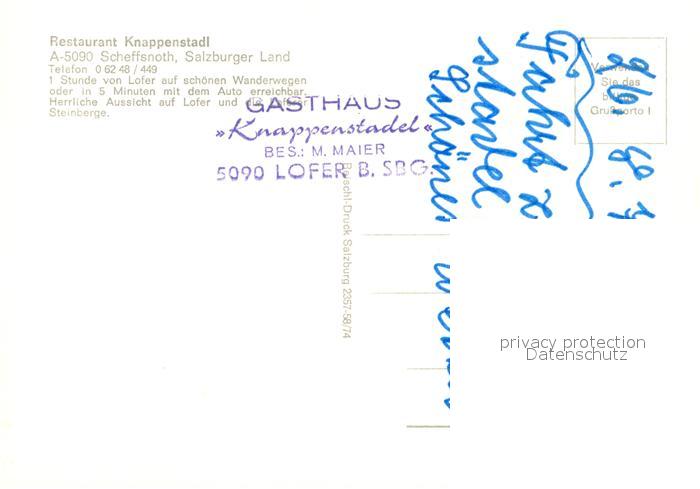 Restaurant Knappenstadl
A-5090 Scheffsnoth, Salzburger Land
Telefon 0 62 48 / 449
1 Stunde von Lofer auf schönen Wanderwegen
oder in 5 Minuten mit dem Auto erreichbar.
Herrliche Aussicht auf Lofer und die Loferer
Steinberge.
GASTHAUS
»Knappenstadel«
BES.: M. MAIER
5090 LOFER B. SBG.
Roischl-Druck Salzburg 2357-58/74
Sie das
Grußporto !
26. 8.
Fahrt
stadel
Schöne
privacy protection
Datenschutz